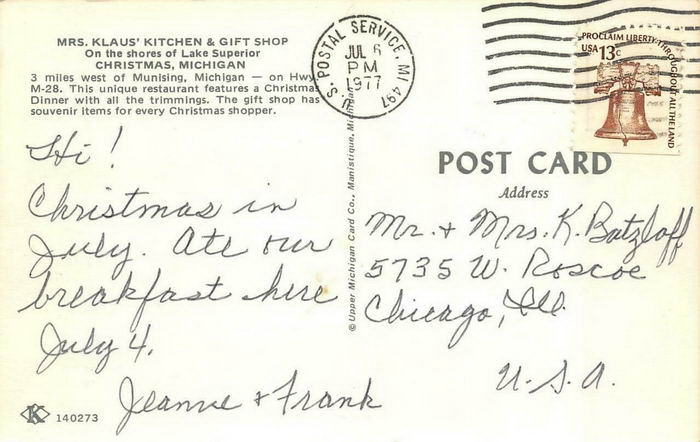 MRS. KLAUS' KITCHEN & GIFT SHOP
On the shores of Lake Superior
CHRISTMAS, MICHIGAN
3 miles west of Munising, Michigan — on Hwy.
M-28. This unique restaurant features a Christmas
Dinner with all the trimmings. The gift shop has
souvenir items for every Christmas shopper.
Hi!
Christmas in
July. Ate our
breakfast here
July 4.
Jeanne & Frank
K 140273
© Upper Michigan Card Co., Manistique, Michigan
U.S. POSTAL SERVICE, MI 497
JUL 6
PM
1977
PROCLAIM LIBERTY THROUGHOUT ALL THE LAND
USA 13c
POST CARD
Address
Mr. & Mrs. K. Batzloff
5735 W. Roscoe
Chicago, Ill.
U.S.A.